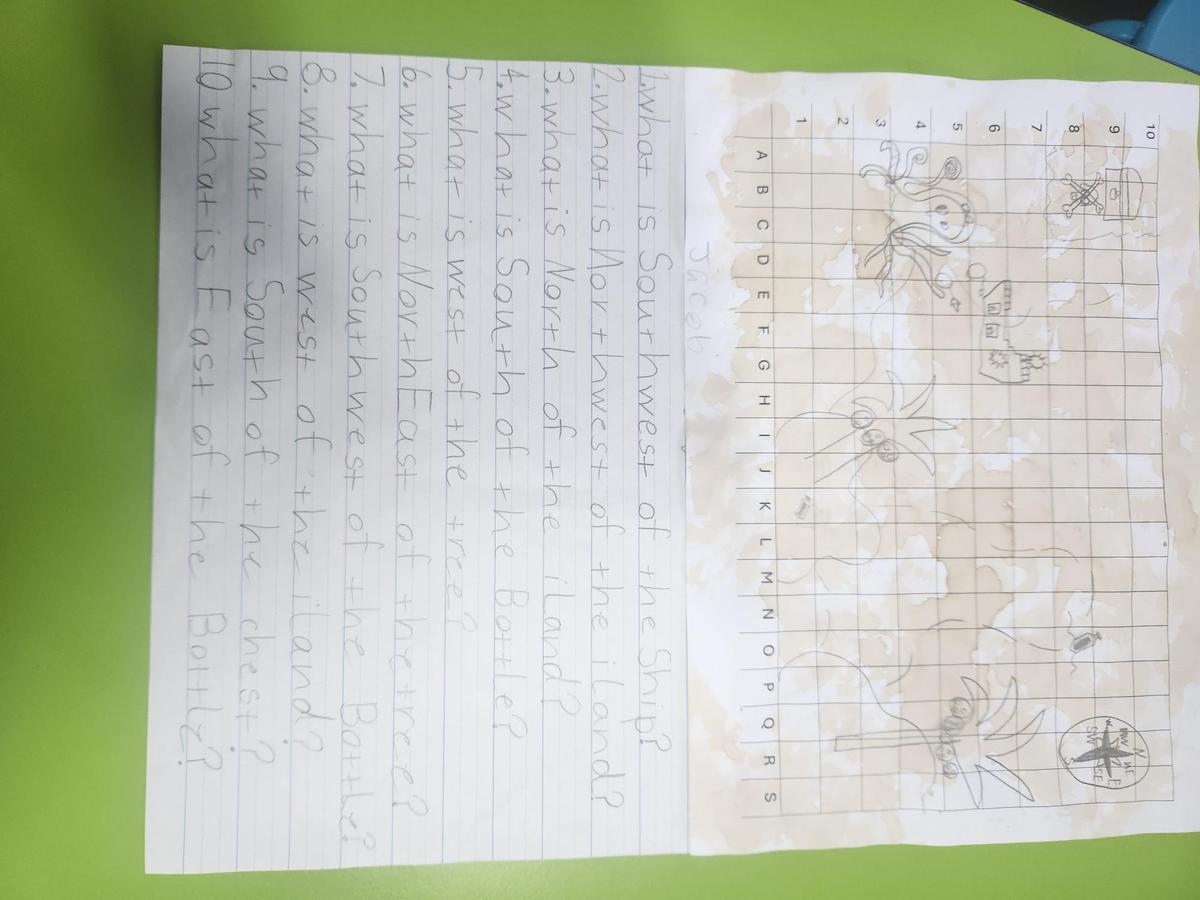 10
9
N
NW NE
8
W E
SW SE
S
7
6
5
4
3
2
1
A B C D E F G H I J K L M N O P Q R S
Jacob
1.what is Southwest of the Ship?
2.what is Northwest of the iland?
3.what is North of the iland?
4.what is South of the Bottle?
5.what is west of the tree?
6.what is NorthEast of the tree?
7.what is Southwest of the Bottle?
8.what is west of the iland?
9.what is South of the chest?
10 what is East of the Bottle?